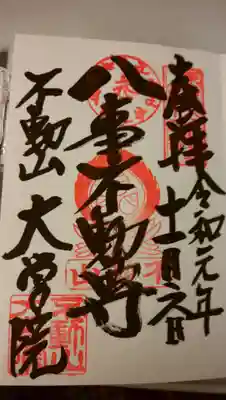 奉拝
令和元年
十一月六日
八事不動尊
不動山
大学院